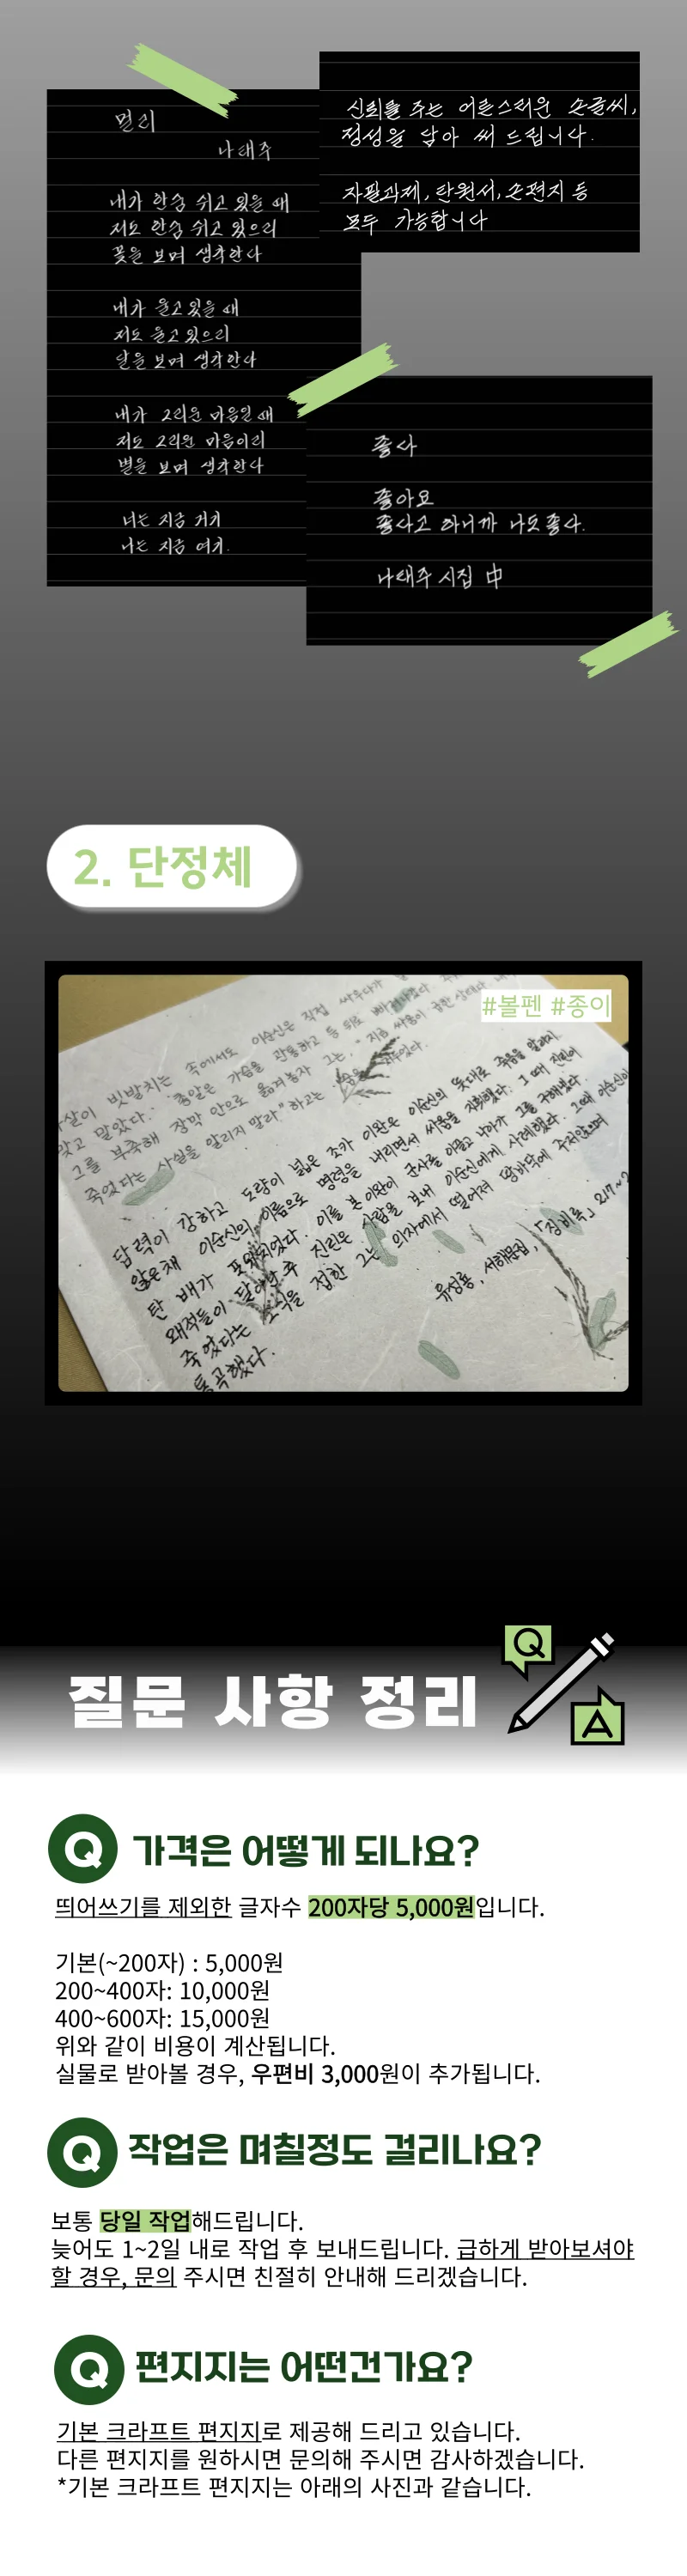 멀리
나태주
내가 한숨 쉬고 있을 때
저도 한숨 쉬고 있으리
꽃을 보며 생각한다
내가 울고 있을 때
저도 울고 있으리
달을 보며 생각한다
내가 그리운 마음일 때
저도 그리운 마음이리
별을 보며 생각한다
너는 지금 거기
나는 지금 여기.
신뢰를 주는 어른스러운 손글씨,
정성을 담아 써 드립니다.
자필과제, 탄원서, 손편지 등
모두 가능합니다
좋사
좋아요
좋사고 하니까 나도 좋사.
나태주 시집 中
2. 단정체
#볼펜 #종이
속에서도 이순신은 직접 싸우다가
살이 빗방치는
맞고 말았다. "총알은 가슴을 관통하고 등 뒤로 빠져나갔다.
그를 부축해 장막 안으로 옮겨놓자 그는 "지금 싸움이 급한 상태다.
죽었다는 사실을 알리지 말라." 하고는 숨을 거두었다.
담력이 강하고 도량이 넓은 조카 이완은 이순신의 뜻대로 죽음을 알리지
않은채 이순신의 이름으로 명령을 내리면서 싸움을 지휘했다. 그 때 진린이
탄 배가 포위되었다. 이를 본 이완이 군사를 이끌고 나아가 그를 구해냈다.
왜적들이 달아난 후 진린은 사람을 보내 이순신에게 사례했다. 그때 이순신이
죽었다는 소식을 접한 그는 의자에서 떨어져 땅바닥에 주저앉으며
통곡했다.
유성룡, 서해문집, 「징비록」 217~2
질문 사항 정리
Q
A
Q 가격은 어떻게 되나요?
띄어쓰기를 제외한 글자수 200자당 5,000원입니다.
기본(~200자) : 5,000원
200~400자: 10,000원
400~600자: 15,000원
위와 같이 비용이 계산됩니다.
실물로 받아볼 경우, 우편비 3,000원이 추가됩니다.
Q 작업은 며칠정도 걸리나요?
보통 당일 작업해드립니다.
늦어도 1~2일 내로 작업 후 보내드립니다. 급하게 받아보셔야
할 경우, 문의 주시면 친절히 안내해 드리겠습니다.
Q 편지지는 어떤건가요?
기본 크라프트 편지지로 제공해 드리고 있습니다.
다른 편지지를 원하시면 문의해 주시면 감사하겠습니다.
*기본 크라프트 편지지는 아래의 사진과 같습니다.